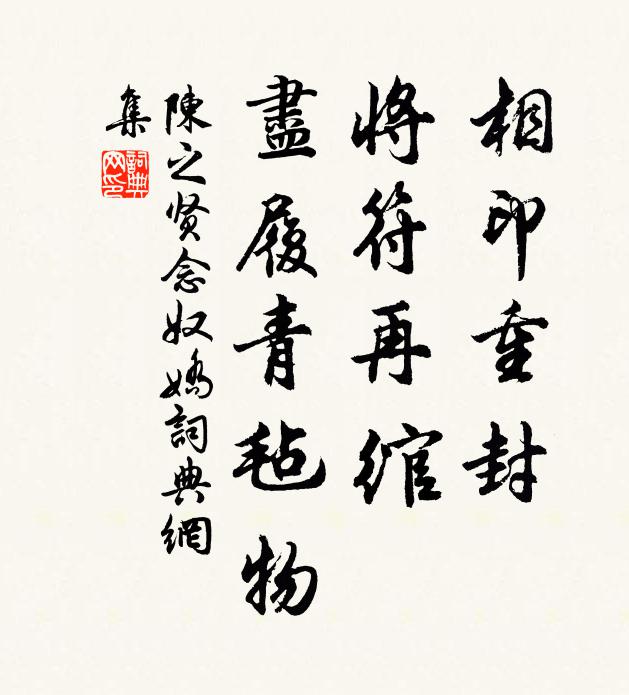 相印重封
將符再綰
盡履青毡物
陳之贤念奴嬌詞典網
集
詞典
网印